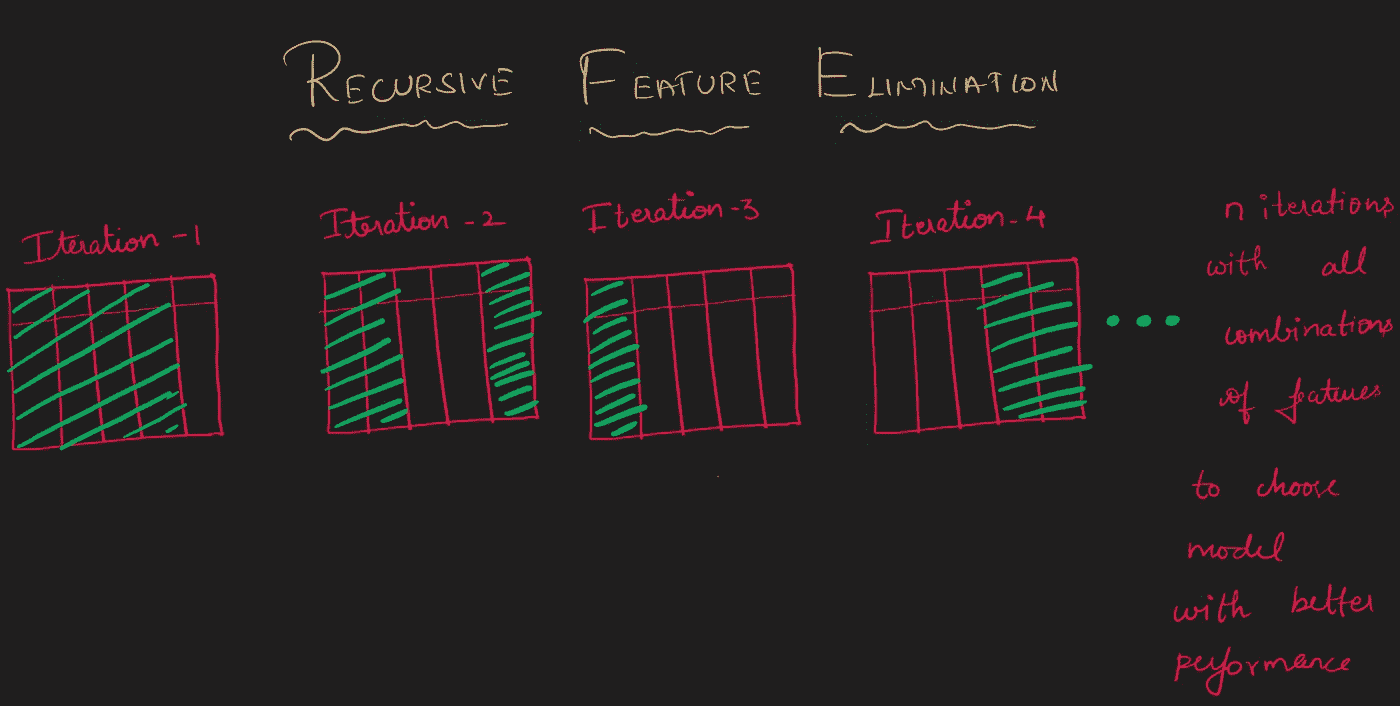 RECURSIVE FEATURE ELIMINATION
Iteration -1
Iteration -2
Iteration -3
Iteration -4
n iterations
with all
combinations
of features
to choose
model
with better
performance